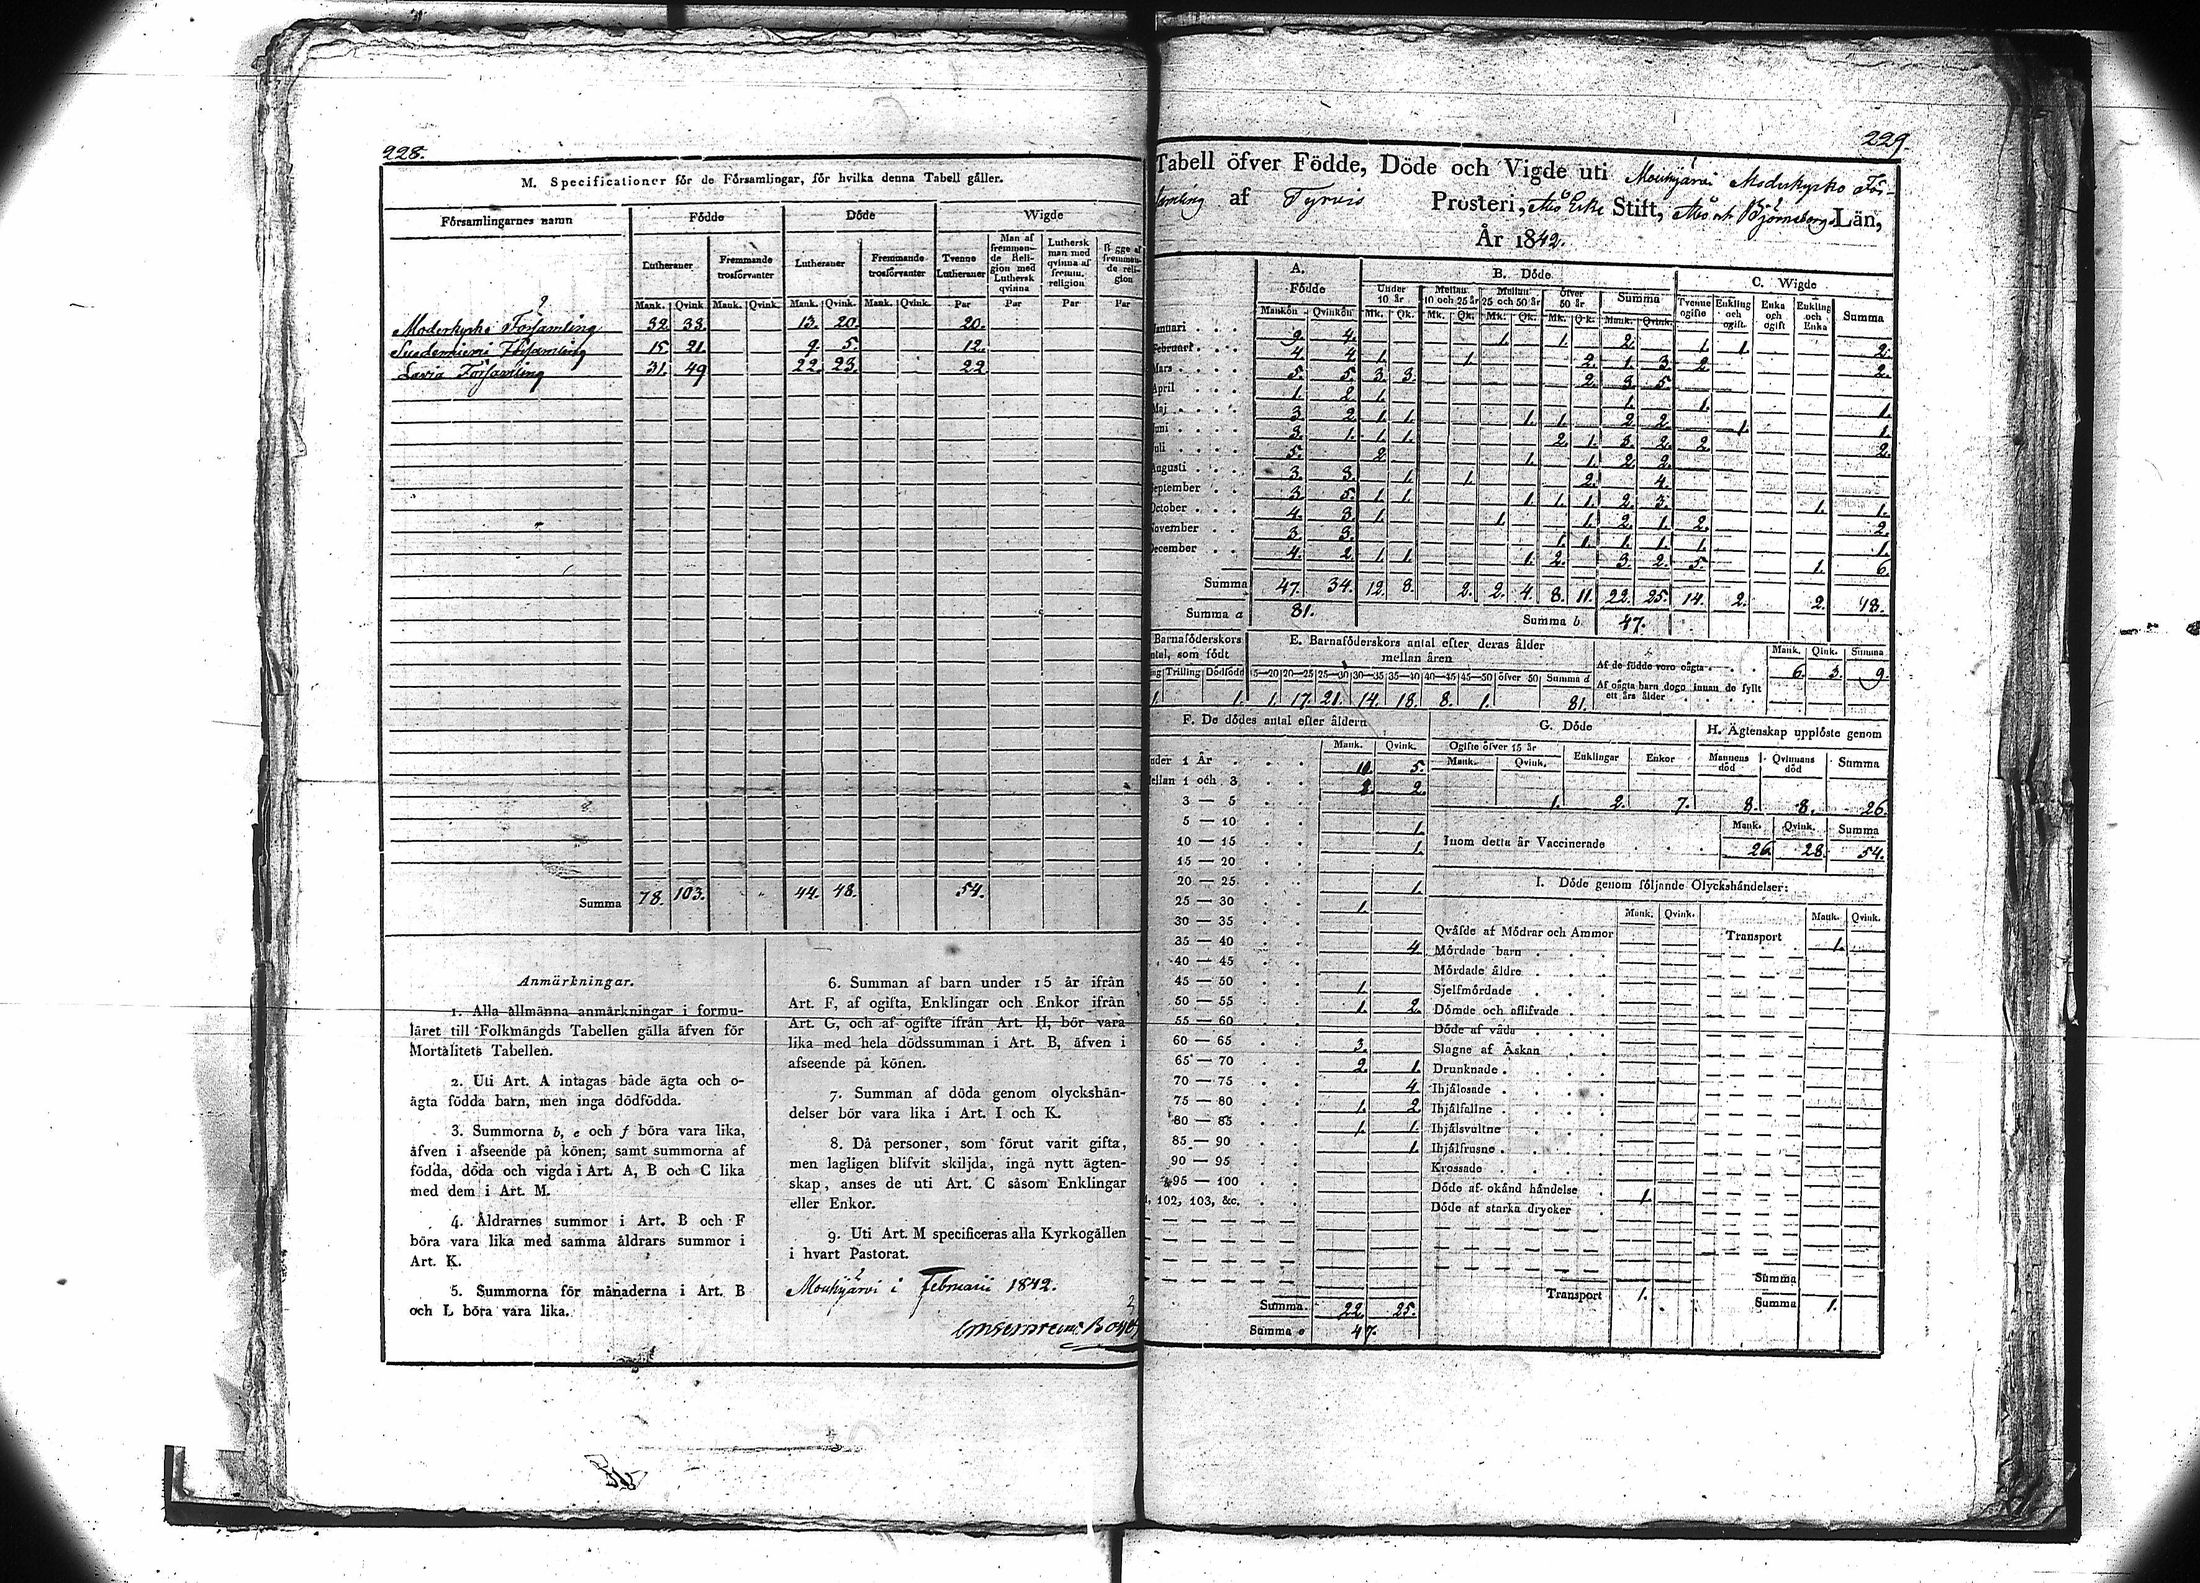 228.
M. Specificationer för de Församlingar, för hvilka denna Tabell gäller.
Församlingarnes namn Födde Döde Wigde
Lutheraner Fremmande trosförvanter Lutheraner Fremmande trosförvanter Tvenne Lutheraner Man af fremmande Religion med Luthersk qvinna Luthersk man med qvinna af fremm. religion
Mank. Qvink Mank. Qvink. Mank. Qvink. Mank. Qvink. Par Par Par Par
Moderkyrko Församling 32. 33. 13. 20. 20.
Suodenniemi Församling 15. 21. 9. 5. 12.
Lavia Församling 31. 49 22. 23. 22
Summa 78. 103. 44. 48. 54.
Anmärkningar.
1. Alla allmänna anmärkningar i formu-
läret till Folkmängds Tabellen gälla äfven för
Mortalitets Tabellen.
2. Uti Art. A intagas både ägta och o-
ägta födda barn, men inga dödfödda.
3. Summorna b, e och f böra vara lika,
äfven i afseende på könen; samt summorna af
födda, döda och vigda i Art. A, B och C lika
med dem i Art. M.
4. Åldrarnes summor i Art. B och F
böra vara lika med samma åldrars summor i
Art. K.
5. Summorna för månaderna i Art. B
och L böra vara lika.
6. Summan af barn under 15 år ifrån
Art. F, af ogifta, Enklingar och Enkor ifrån
Art. G, och af ogifte ifrån Art. H, bör vara
lika med hela dödssumman i Art. B, äfven i
afseende på könen.
7. Summan af döda genom olyckshän-
delser bör vara lika i Art. I och K.
8. Då personer, som förut varit gifta,
men lagligen blifvit skiljda, ingå nytt ägten-
skap, anses de uti Art. C såsom Enklingar
eller Enkor.
9. Uti Art. M specificeras alla Kyrkogällen
i hvart Pastorat.
Mouhijärvi i Februarii 1842.
229.
Tabell öfver Födde, Döde och Vigde uti Mouhijärvi Moderkyrko För-
samling af Tyrvis Prosteri, Åbo Erke Stift, Åbo och Björneborgs Län,
År 1842.
A. Födde B. Döde C. Wigde
Under 10 år Mellan 10 och 25 år Mellan 25 och 50 år öfver 50 år Summa Tvenne ogifte Enkling och ogift. Enka och ogift Enkling och Enka Summa
Mankön Qvinkön Mk. Qk. Mk. Qk. Mk. Qk. Mk. Qk. Mank. Qvink.
Januari 9. 4. 1. 1. 2. 1. 1. 2.
Februari 4. 4. 1. 1. 2. 1. 3. 2. 2.
Mars 5. 5. 3. 3. 2. 3. 5.
April 1. 2. 1. 1. 1. 1.
Maj 3. 2. 1. 1. 1. 1. 2. 2. 1. 1.
Juni 3. 1. 1. 1. 2. 1. 3. 2. 2. 2.
Juli 5. 2. 1. 1. 2. 2.
Augusti 3. 3. 1. 1. 2. 4.
September 3. 5. 1. 1. 1. 1. 1. 2. 3. 1. 1.
October 4. 3. 1. 1. 1. 2. 1. 2. 2.
November 3. 3. 1. 1. 1. 1. 1. 1.
December 4. 2. 1. 1. 1. 2. 3. 2. 5. 1. 6.
Summa 47. 34. 12. 8. 2. 2. 4. 8. 11. 22. 25. 14. 2. 2. 18.
Summa a 81. Summa b. 47.
Barnaföderskors antal, som födt
Trilling Dödfödd
1. 1.
E. Barnaföderskors antal efter deras ålder mellan åren
15—20 20—25 25—30 30—35 35—40 40—45 45—50 öfver 50 Summa d
1. 17. 21. 14. 18. 8. 1. 81.
Mank. Qink. Summa
Af de födde voro oägta 6. 3. 9.
Af oägta barn dogo innan de fyllt ett års ålder
F. De dödes antal efter åldern
Mank. Qvink.
Under 1 År 10. 5.
Mellan 1 och 3 2. 2.
3 — 5
5 — 10 1.
10 — 15 1.
15 — 20
20 — 25 1.
25 — 30 1.
30 — 35
35 — 40 4.
40 — 45
45 — 50 1.
50 — 55 1. 2.
55 — 60
60 — 65 3.
65 — 70 2. 1.
70 — 75 4.
75 — 80 1. 2.
80 — 85 1. 1.
85 — 90 1.
90 — 95
95 — 100
102, 103, &c.
Summa 22. 25.
Summa e 47.
G. Döde
Ogifte öfver 15 år Enklingar Enkor
Mank. Qvink.
1. 2. 7.
H. Ägtenskap upplöste genom
Mannens död Qvinnans död Summa
8. 8. 26.
Mank. Qvink. Summa
Inom detta år Vaccinerade 26. 28. 54.
I. Döde genom följande Olyckshändelser:
Mank. Qvink. Mank. Qvink.
Qväfde af Mödrar och Ammor
Transport 1.
Mördade barn
Mördade äldre
Sjelfmördade
Dömde och aflifvade
Döde af våda
Slagne af Åskan
Drunknade
Ihjälosade
Ihjälfallne
Ihjälsvultne
Ihjälfrusne
Krossade
Döde af okänd händelse 1.
Döde af starka drycker
Transport 1.
Summa
Summa 1.